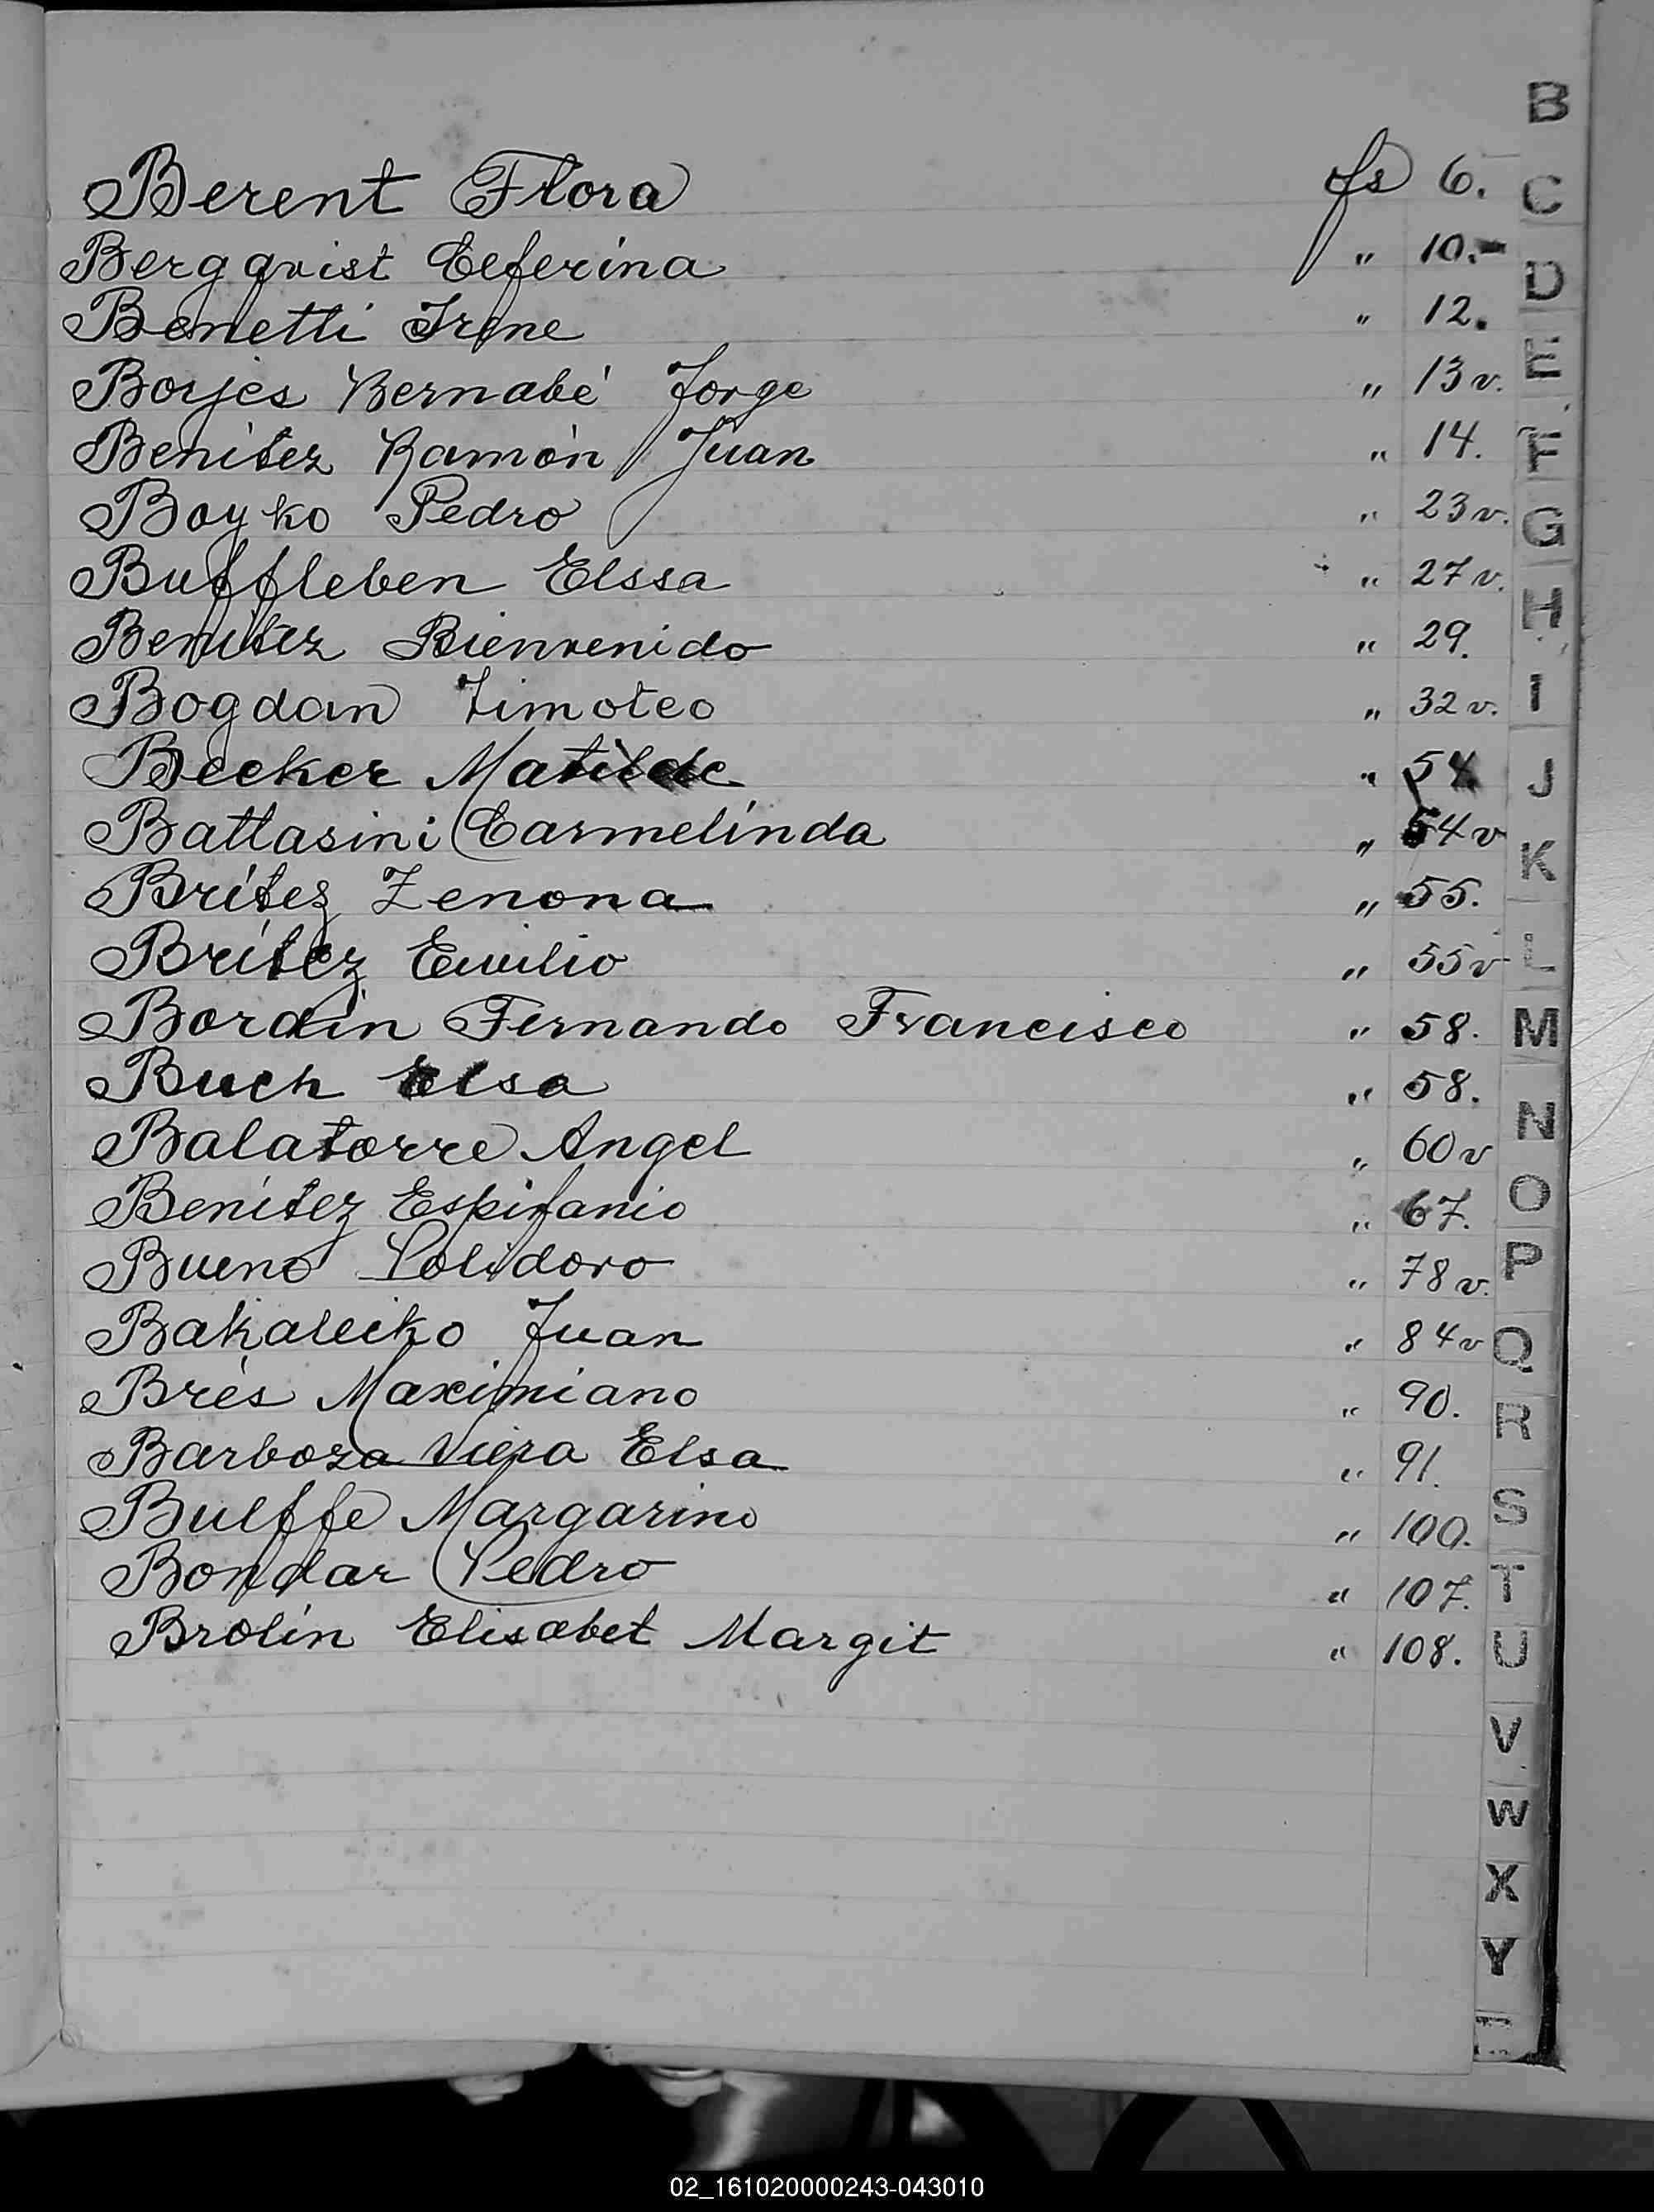 B
Berent Flora fs 6.
C
Bergqvist Ceferina " 10.-
D
Benetti Irene " 12.
Borjes Bernabé Jorge " 13 v.
E
Benítez Ramón Juan " 14.
F
Boyko Pedro " 23 v.
G
Buffleben Elssa " 27 v.
H
Benítez Bienvenido " 29.
Bogdan Timoteo " 32 v.
I
Becker Matilde " 54.
J
Battasini Carmelinda " 54 v
K
Brítez Zenona " 55.
Brítez Emilio " 55 v
L
Bordin Fernando Francisco " 58.
M
Buch Elsa " 58.
N
Balatorre Angel " 60 v
Benítez Espifanio " 67.
O
Bueno Polidoro " 78 v.
P
Bakaleiko Juan " 84 v
Q
Brés Maximiano " 90.
R
Barboza Viera Elsa " 91.
Bulffe Margarino " 100.
S
Bondar Pedro " 107.
T
Brolín Elisabet Margit " 108.
U
V
W
X
Y
02_161020000243-043010